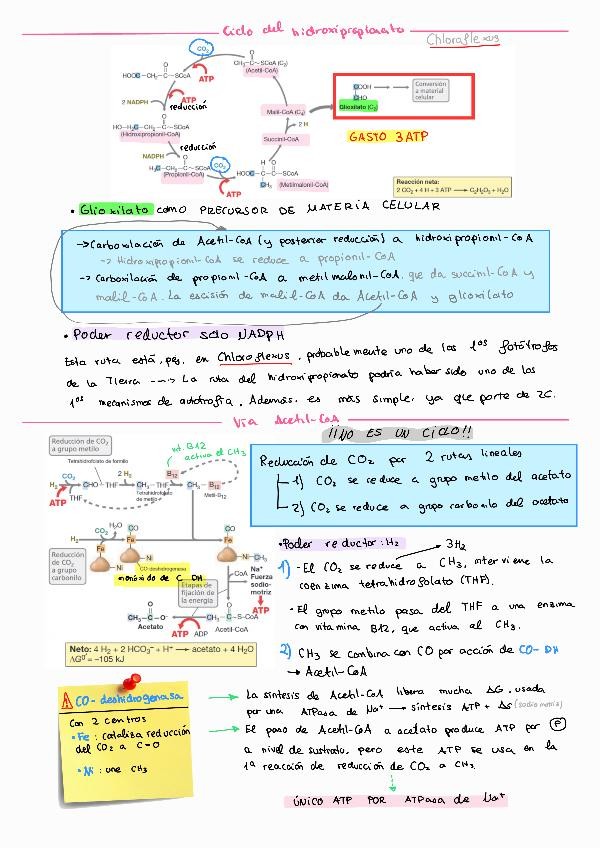 Ciclo del hidroxipropionato
Chloroflexus
CO₂
HOOC—CH₂—C—SCoA
ATP
CH₃—C—SCoA (C₂)
(Acetil-CoA)
2 NADPH
reducción
HO—H₂C—CH₂—C—SCoA
(Hidroxipropionil-CoA)
reducción
NADPH
H₃C—CH₂—C—SCoA
(Propionil-CoA)
CO₂
ATP
HOOC—C—C—SCoA
CH₃ (Metilmalonil-CoA)
Succinil-CoA
2 H
Malil-CoA (C₄)
COOH
CHO
Glioxilato (C₂)
Conversión
a material
celular
GASTO 3 ATP
Reacción neta:
2 CO₂ + 4 H + 3 ATP → C₂H₂O₃ + H₂O
• Glioxilato como PRECURSOR DE MATERIA CELULAR
→ Carboxilación de Acetil-CoA (y posterior reducción) a hidroxipropionil-CoA
→ Hidroxipropionil-CoA se reduce a propionil-CoA
→ Carboxilación de propionil-CoA a metilmalonil-CoA. que da succinil-CoA y
malil-CoA. La escisión de malil-CoA da Acetil-CoA y glioxilato
• Poder reductor solo NADPH
Esta ruta está, pej, en Chloroflexus, probablemente uno de los 1os fotótrofos
de la Tierra ---> La ruta del hidroxipropionato podría haber sido uno de los
1os mecanismos de autotrofía. Además, es más simple, ya que parte de 2C.
Vía Acetil-CoA
¡¡NO ES UN CICLO!!
Reducción de CO₂
a grupo metilo
Tetrahidrofolato de formilo
vit. B12
activa el CH₃
CO₂
2 H₂
B₁₂
H₂
CHO—THF
CH₃—THF
CH₃—B₁₂
ATP
THF
Tetrahidrofolato
de metilo
Metil-B₁₂
H₂
CO₂
H₂O
CO
CO
Fe
Fe
Ni
Ni—CH₃
CO-deshidrogenasa
monóxido de C DH
Reducción
de CO₂
a grupo
carbonilo
CoA
Na⁺
Fuerza
sodio-
motriz
ATP
Etapas de
fijación de
la energía
CH₃—C—O⁻
Acetato
ATP ADP
CH₃—C—S—CoA
Acetil-CoA
Neto: 4 H₂ + 2 HCO₃⁻ + H⁺ → acetato + 4 H₂O
ΔG⁰' = −105 kJ
Reducción de CO₂ por 2 rutas lineales
1) CO₂ se reduce a grupo metilo del acetato
2) CO₂ se reduce a grupo carbonilo del acetato
• Poder reductor: H₂
3H₂
1) - El CO₂ se reduce a CH₃, interviene la
coenzima tetrahidrofolato (THF).
- El grupo metilo pasa del THF a una enzima
con vitamina B12, que activa al CH₃.
2) CH₃ se combina con CO por acción de CO-DH
→ Acetil-CoA
CO-deshidrogenasa
Con 2 centros
• Fe: cataliza reducción
del CO₂ a C=O
• Ni: une CH₃
→ La síntesis de Acetil-CoA libera mucha ΔG, usada
por una ATPasa de Na⁺ → síntesis ATP + Δs (sodio motriz)
→ El paso de Acetil-CoA a acetato produce ATP por P
a nivel de sustrato, pero este ATP se usa en la
1ª reacción de reducción de CO₂ a CH₃.
ÚNICO ATP POR ATPasa de Na⁺